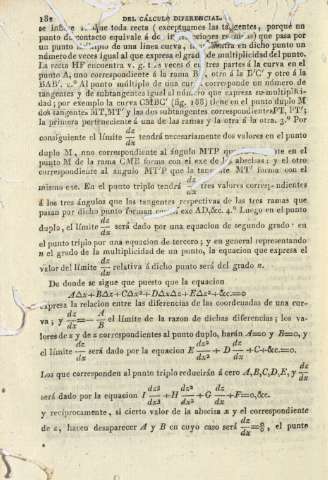 182 DEL CÁLCULO DIFERENCIAL.
se que toda recta (exceptuamos las tangentes, porqué un
punto de contacto equivale á de ) que pasa por
un punto de una linea curva, en dicho punto un
número de veces igual al que expresa el grado de multiplicidad del punto.
La recta HF encuentra v. g. veces ó otras partes á la curva en el
punto A, uno correspondiente á la rama B otro á la D'C' y otro á la
BAB'. 2.º Al punto múltiplo de una curva corresponde un número de
tangentes y de subtangentes igual al número que expresa su multiplici-
dad; por exemplo la curva CMBC' (fig. 188) tiene en el punto duplo M
dos tangentes MT, MT' y las dos subtangentes correspondientes PT, PT';
la primera perteneciente á una de las ramas y la otra á la otra. 3.º Por
consiguiente el límite dz/dx tendrá necesariamente dos valores en el punto
duplo M, uno correspondiente al ángulo MTP que en el
punto M de la rama CMB forma con el exe de abscisas; y el otro
correspondiente al ángulo MT'P que la tangente MT' forma con el
mismo exe. En el punto triplo tendrá dz/dx tres valores correspondientes
á los tres ángulos que los tangentes respectivas de las tres ramas que
pasan por dicho punto forman con el exe AD,&c. 4.º Luego en el punto
duplo, el límite dz/dx será dado por una equacion de segundo grado: en
el punto triplo por una equacion de tercero; y en general representando
n el grado de la multiplicidad de un punto, la equacion que expresa el
valor del límite dz/dx relativa á dicho punto será del grado n.
De donde se sigue que puesto que la equacion
AΔx+BΔz+CΔx²+DΔxΔz+EΔz²+&c.=0
expresa la relacion entre las diferencias de las coordenadas de una cur-
va; y dz/dx = - A/B el límite de la razon de dichas diferencias; los va-
lores de x y de z correspondientes al punto duplo, harán A=0 y B=0, y
el límite dz/dx será dado por la equacion E dz²/dx² + D dz/dx +C+&c.=0.
Los que corresponden al punto triplo reducirán á cero A,B,C,D,E, y dz/dx
será dado por la equacion I dz³/dx³ +H dz²/dx² +G dz/dx +F=0,&c.
y reciprocamente, si cierto valor de la abscisa x y el correspondiente
de z, hacen desaparecer A y B en cuyo caso será dz/dx = 0/0, el punto